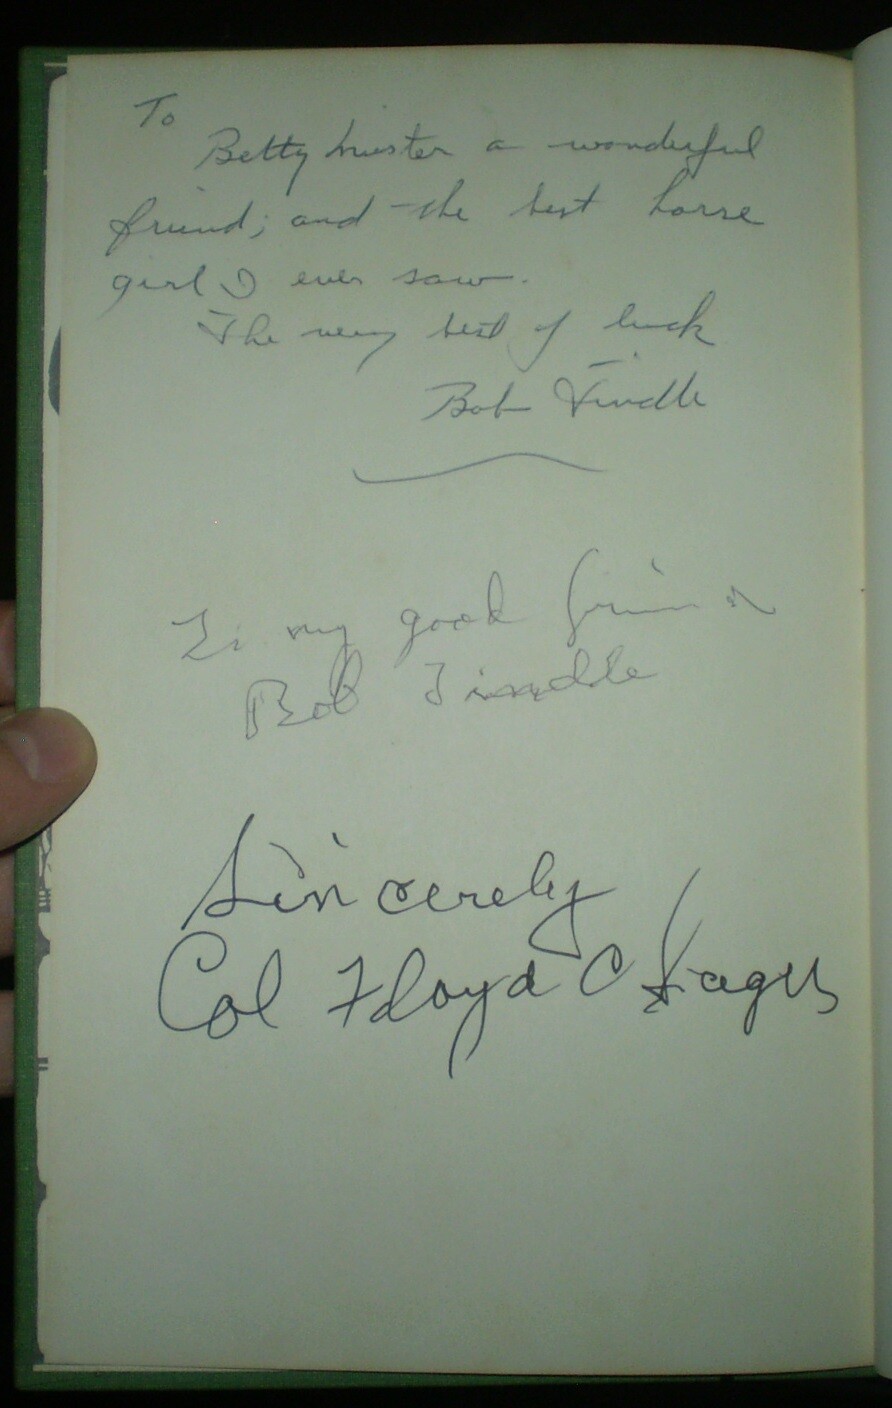 To
Betty a wonderful
friend; and the best horse
girl I ever saw.
The very best of luck
Bob Tindle
To my good friend
Bob Tindle
Sincerely
Col Floyd C